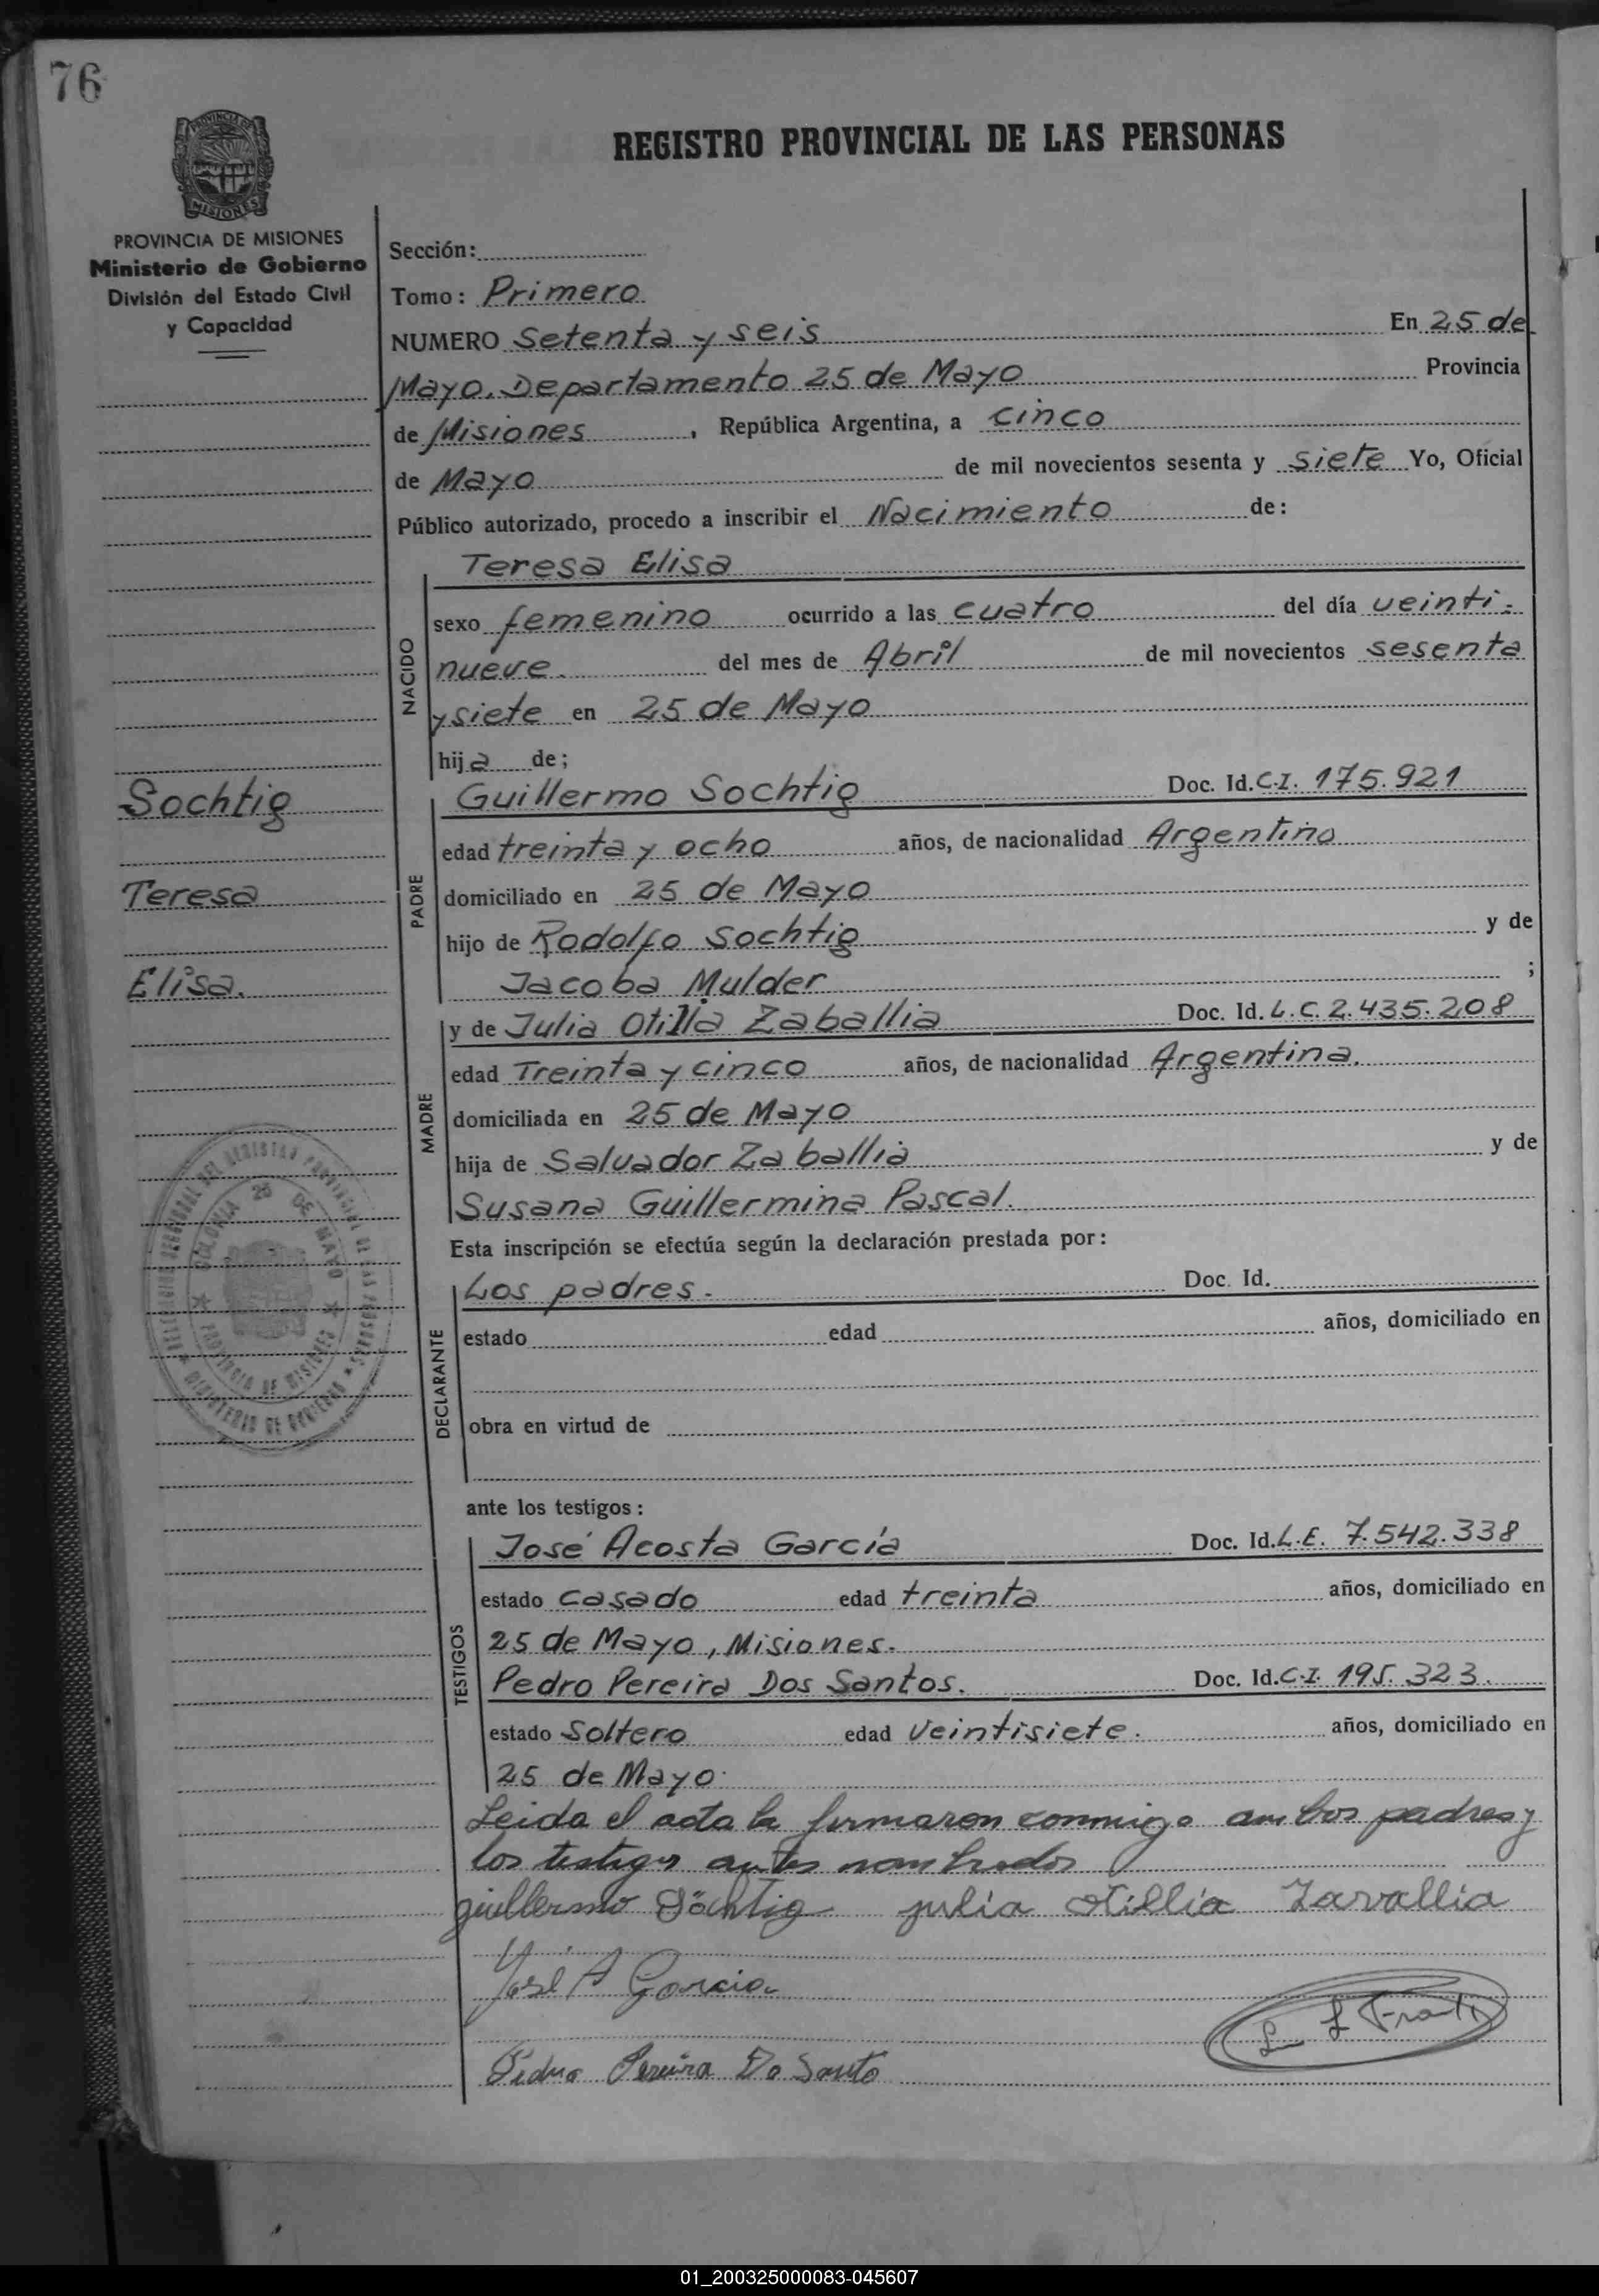 76
REGISTRO PROVINCIAL DE LAS PERSONAS
PROVINCIA DE
MISIONES
PROVINCIA DE MISIONES
Ministerio de Gobierno
División del Estado Civil
y Capacidad
Sección:
Tomo: Primero
NUMERO Setenta y seis En 25 de
Mayo. Departamento 25 de Mayo Provincia
de Misiones, República Argentina, a cinco
de Mayo de mil novecientos sesenta y siete Yo, Oficial
Público autorizado, procedo a inscribir el Nacimiento de:
Teresa Elisa
NACIDO
sexo femenino ocurrido a las cuatro del día veinti-
nueve. del mes de Abril de mil novecientos sesenta
y siete en 25 de Mayo
hija de;
Sochtig
Teresa
Elisa.
PADRE
Guillermo Sochtig Doc. Id. C.I. 175.921
edad treinta y ocho años, de nacionalidad Argentino
domiciliado en 25 de Mayo
hijo de Rodolfo Sochtig y de
Jacoba Mulder ;
MADRE
y de Julia Otilla Zaballia Doc. Id. L.C. 2.435.208
edad Treinta y cinco años, de nacionalidad Argentina.
domiciliada en 25 de Mayo
hija de Salvador Zaballia y de
Susana Guillermina Pascal.
Esta inscripción se efectúa según la declaración prestada por:
DECLARANTE
Los padres. Doc. Id.
estado edad años, domiciliado en
obra en virtud de
COLONIA 25 DE MAYO
PROVINCIA DE MISIONES
DEL REGISTRO PROVINCIAL DE LAS PERSONAS
MINISTERIO DE GOBIERNO
ante los testigos:
TESTIGOS
José Acosta García Doc. Id. L.E. 7.542.338
estado casado edad treinta años, domiciliado en
25 de Mayo, Misiones.
Pedro Pereira Dos Santos. Doc. Id. C.I. 195.323.
estado Soltero edad Veintisiete. años, domiciliado en
25 de Mayo.
Leida el acta la firmaron conmigo ambos padres y
los testigos antes nombrados
guillermo Söchtig julia otillia Zavallia
José A Garcia
Pedro Pereira Do Santo
01_200325000083-045607